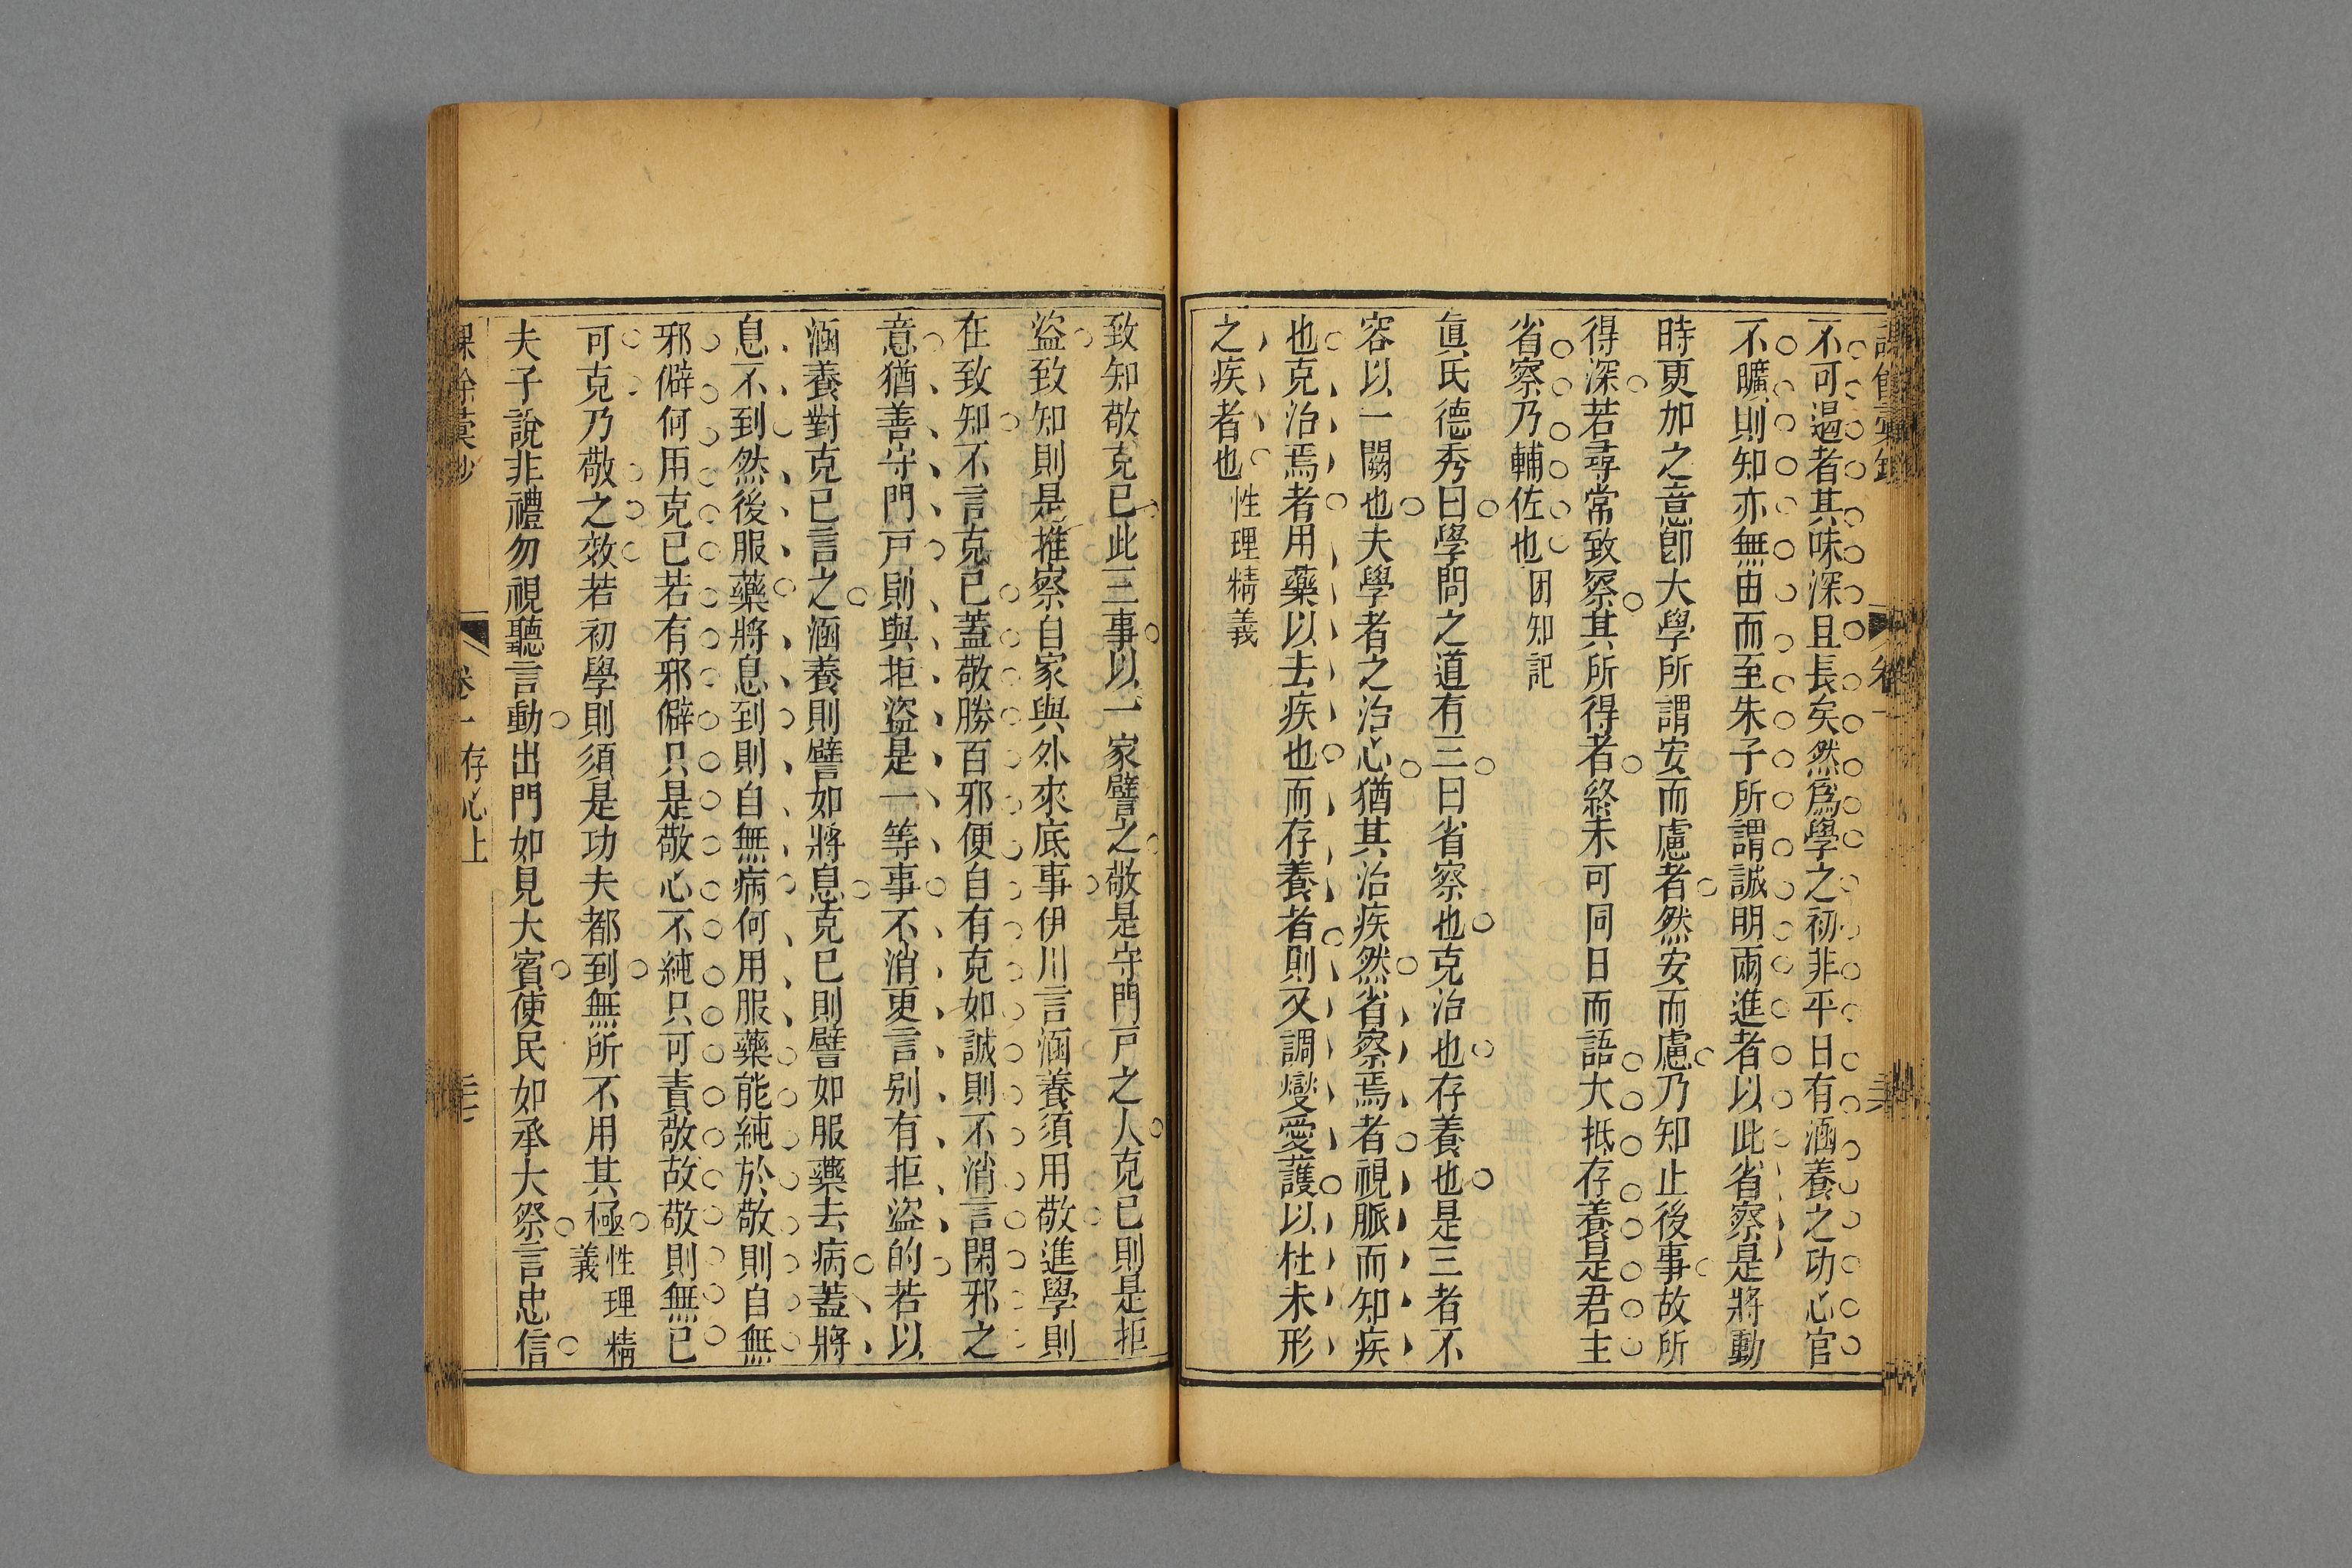 不可遏者其味深且長矣然爲學之初非平日有涵養之功心官
不曠則知亦無由而至朱子所謂誠明兩進者以此省察是將動
時更加之意卽大學所謂安而慮者然安而慮乃知止後事故所
得深若尋常致察其所得者終未可同日而語大抵存養是君主
省察乃輔佐也困知記
眞氏德秀曰學問之道有三曰省察也克治也存養也是三者不
容以一闕也夫學者之治心猶其治疾然省察焉者視脈而知疾
也克治焉者用藥以去疾也而存養者則又調燮愛護以杜未形
之疾者也性理精義
致知敬克已此三事以一家譬之敬是守門戸之人克已則是拒
盜致知則是推察自家與外來底事伊川言涵養須用敬進學則
在致知不言克已蓋敬勝百邪便自有克如誠則不消言閑邪之
意猶善守門戸則與拒盜是一等事不消更言别有拒盜的若以
涵養對克已言之涵養則譬如將息克已則譬如服藥去病蓋將
息不到然後服藥將息到則自無病何用服藥能純於敬則自無
邪僻何用克已若有邪僻只是敬心不純只可責敬故敬則無已
可克乃敬之效若初學則須是功夫都到無所不用其極性理精義
夫子說非禮勿視聽言動出門如見大賓使民如承大祭言忠信
卷一存心上